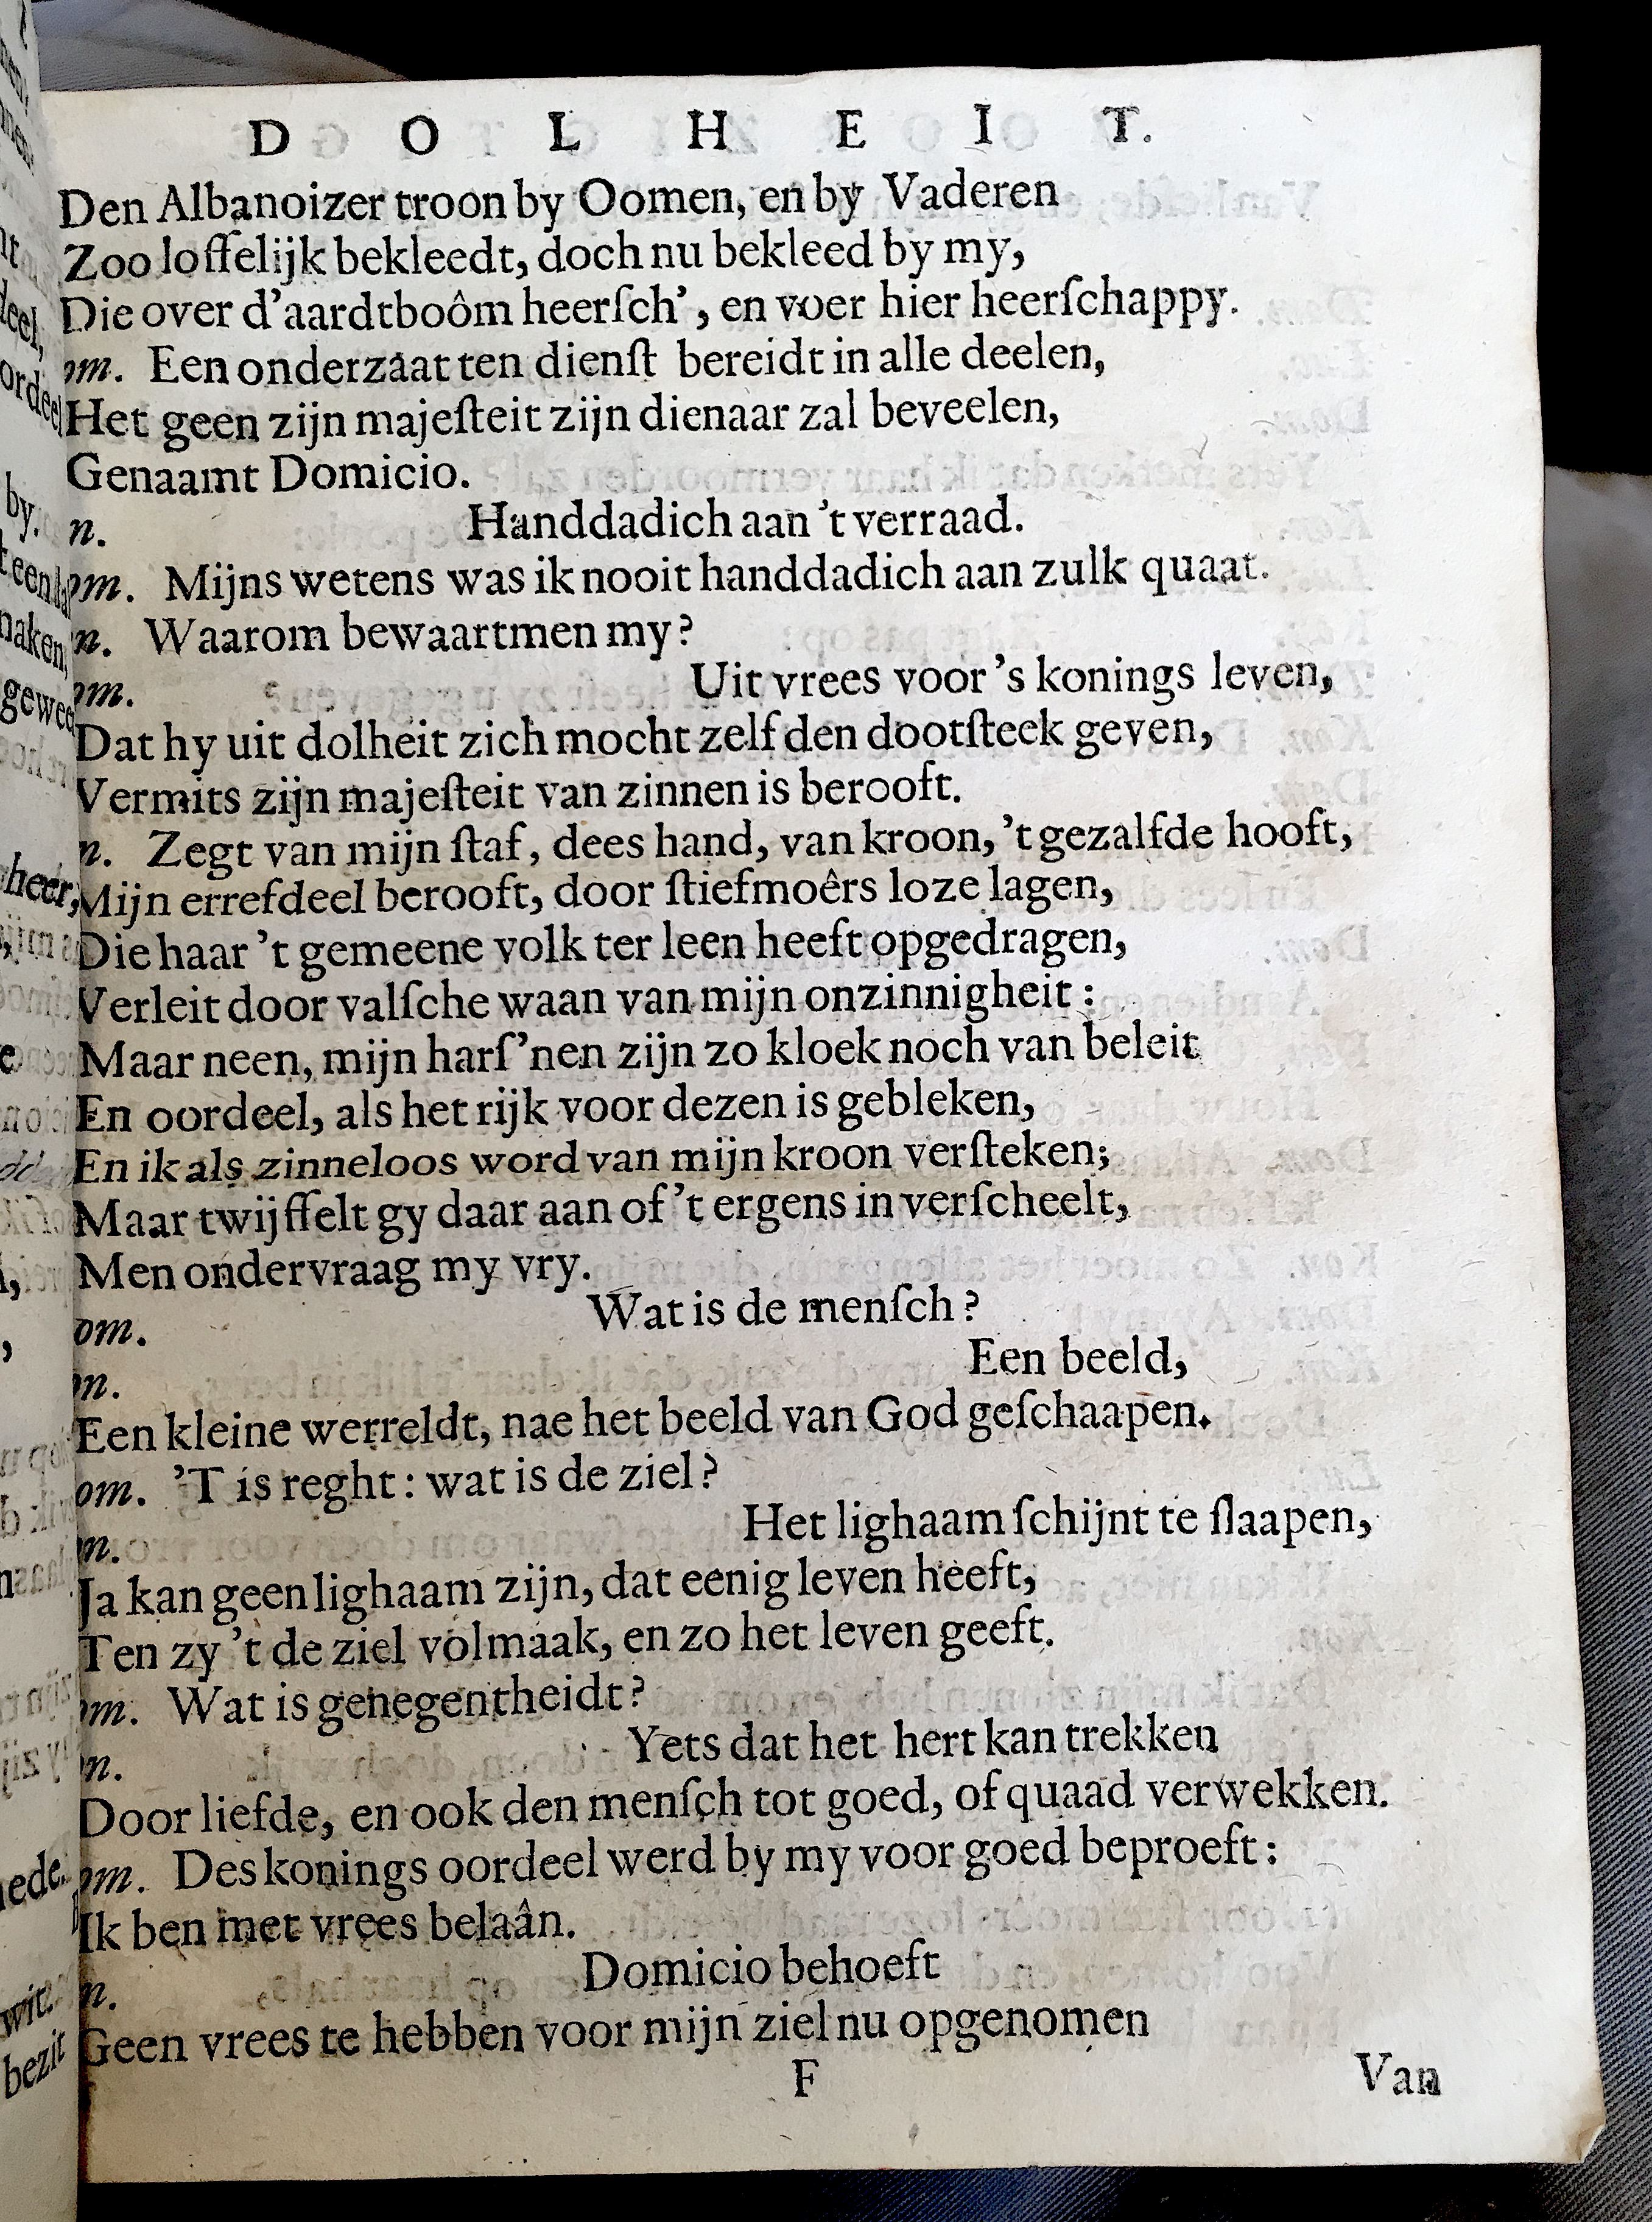 D O L H E I T.
Den Albanoizer troon by Oomen, en by Vaderen
Zoo loffelijk bekleedt, doch nu bekleed by my,
Die over d'aardtboôm heerſch', en voer hier heerſchappy.
om. Een onderzaat ten dienſt bereidt in alle deelen,
Het geen zijn majeſteit zijn dienaar zal beveelen,
Genaamt Domicio.
n. Handdadich aan 't verraad.
om. Mijns wetens was ik nooit handdadich aan zulk quaat.
n. Waarom bewaartmen my?
om. Uit vrees voor 's konings leven,
Dat hy uit dolheit zich mocht zelf den dootſteek geven,
Vermits zijn majeſteit van zinnen is berooft.
n. Zegt van mijn ſtaf, dees hand, van kroon, 't gezalfde hooft,
Mijn errefdeel berooft, door ſtiefmoêrs loze lagen,
Die haar 't gemeene volk ter leen heeft opgedragen,
Verleit door valſche waan van mijn onzinnigheit:
Maar neen, mijn harſ'nen zijn zo kloek noch van beleit
En oordeel, als het rijk voor dezen is gebleken,
En ik als zinneloos word van mijn kroon verſteken;
Maar twijffelt gy daar aan of 't ergens in verſcheelt,
Men ondervraag my vry.
om. Wat is de menſch?
n. Een beeld,
Een kleine werreldt, nae het beeld van God geſchaapen.
om. 'T is reght: wat is de ziel?
n. Het lighaam ſchijnt te ſlaapen,
Ja kan geen lighaam zijn, dat eenig leven heeft,
Ten zy 't de ziel volmaak, en zo het leven geeft.
om. Wat is genegentheidt?
n. Yets dat het hert kan trekken
Door liefde, en ook den menſch tot goed, of quaad verwekken.
om. Des konings oordeel werd by my voor goed beproeft:
Ik ben met vrees belaân.
n. Domicio behoeft
Geen vrees te hebben voor mijn ziel nu opgenomen
F Van